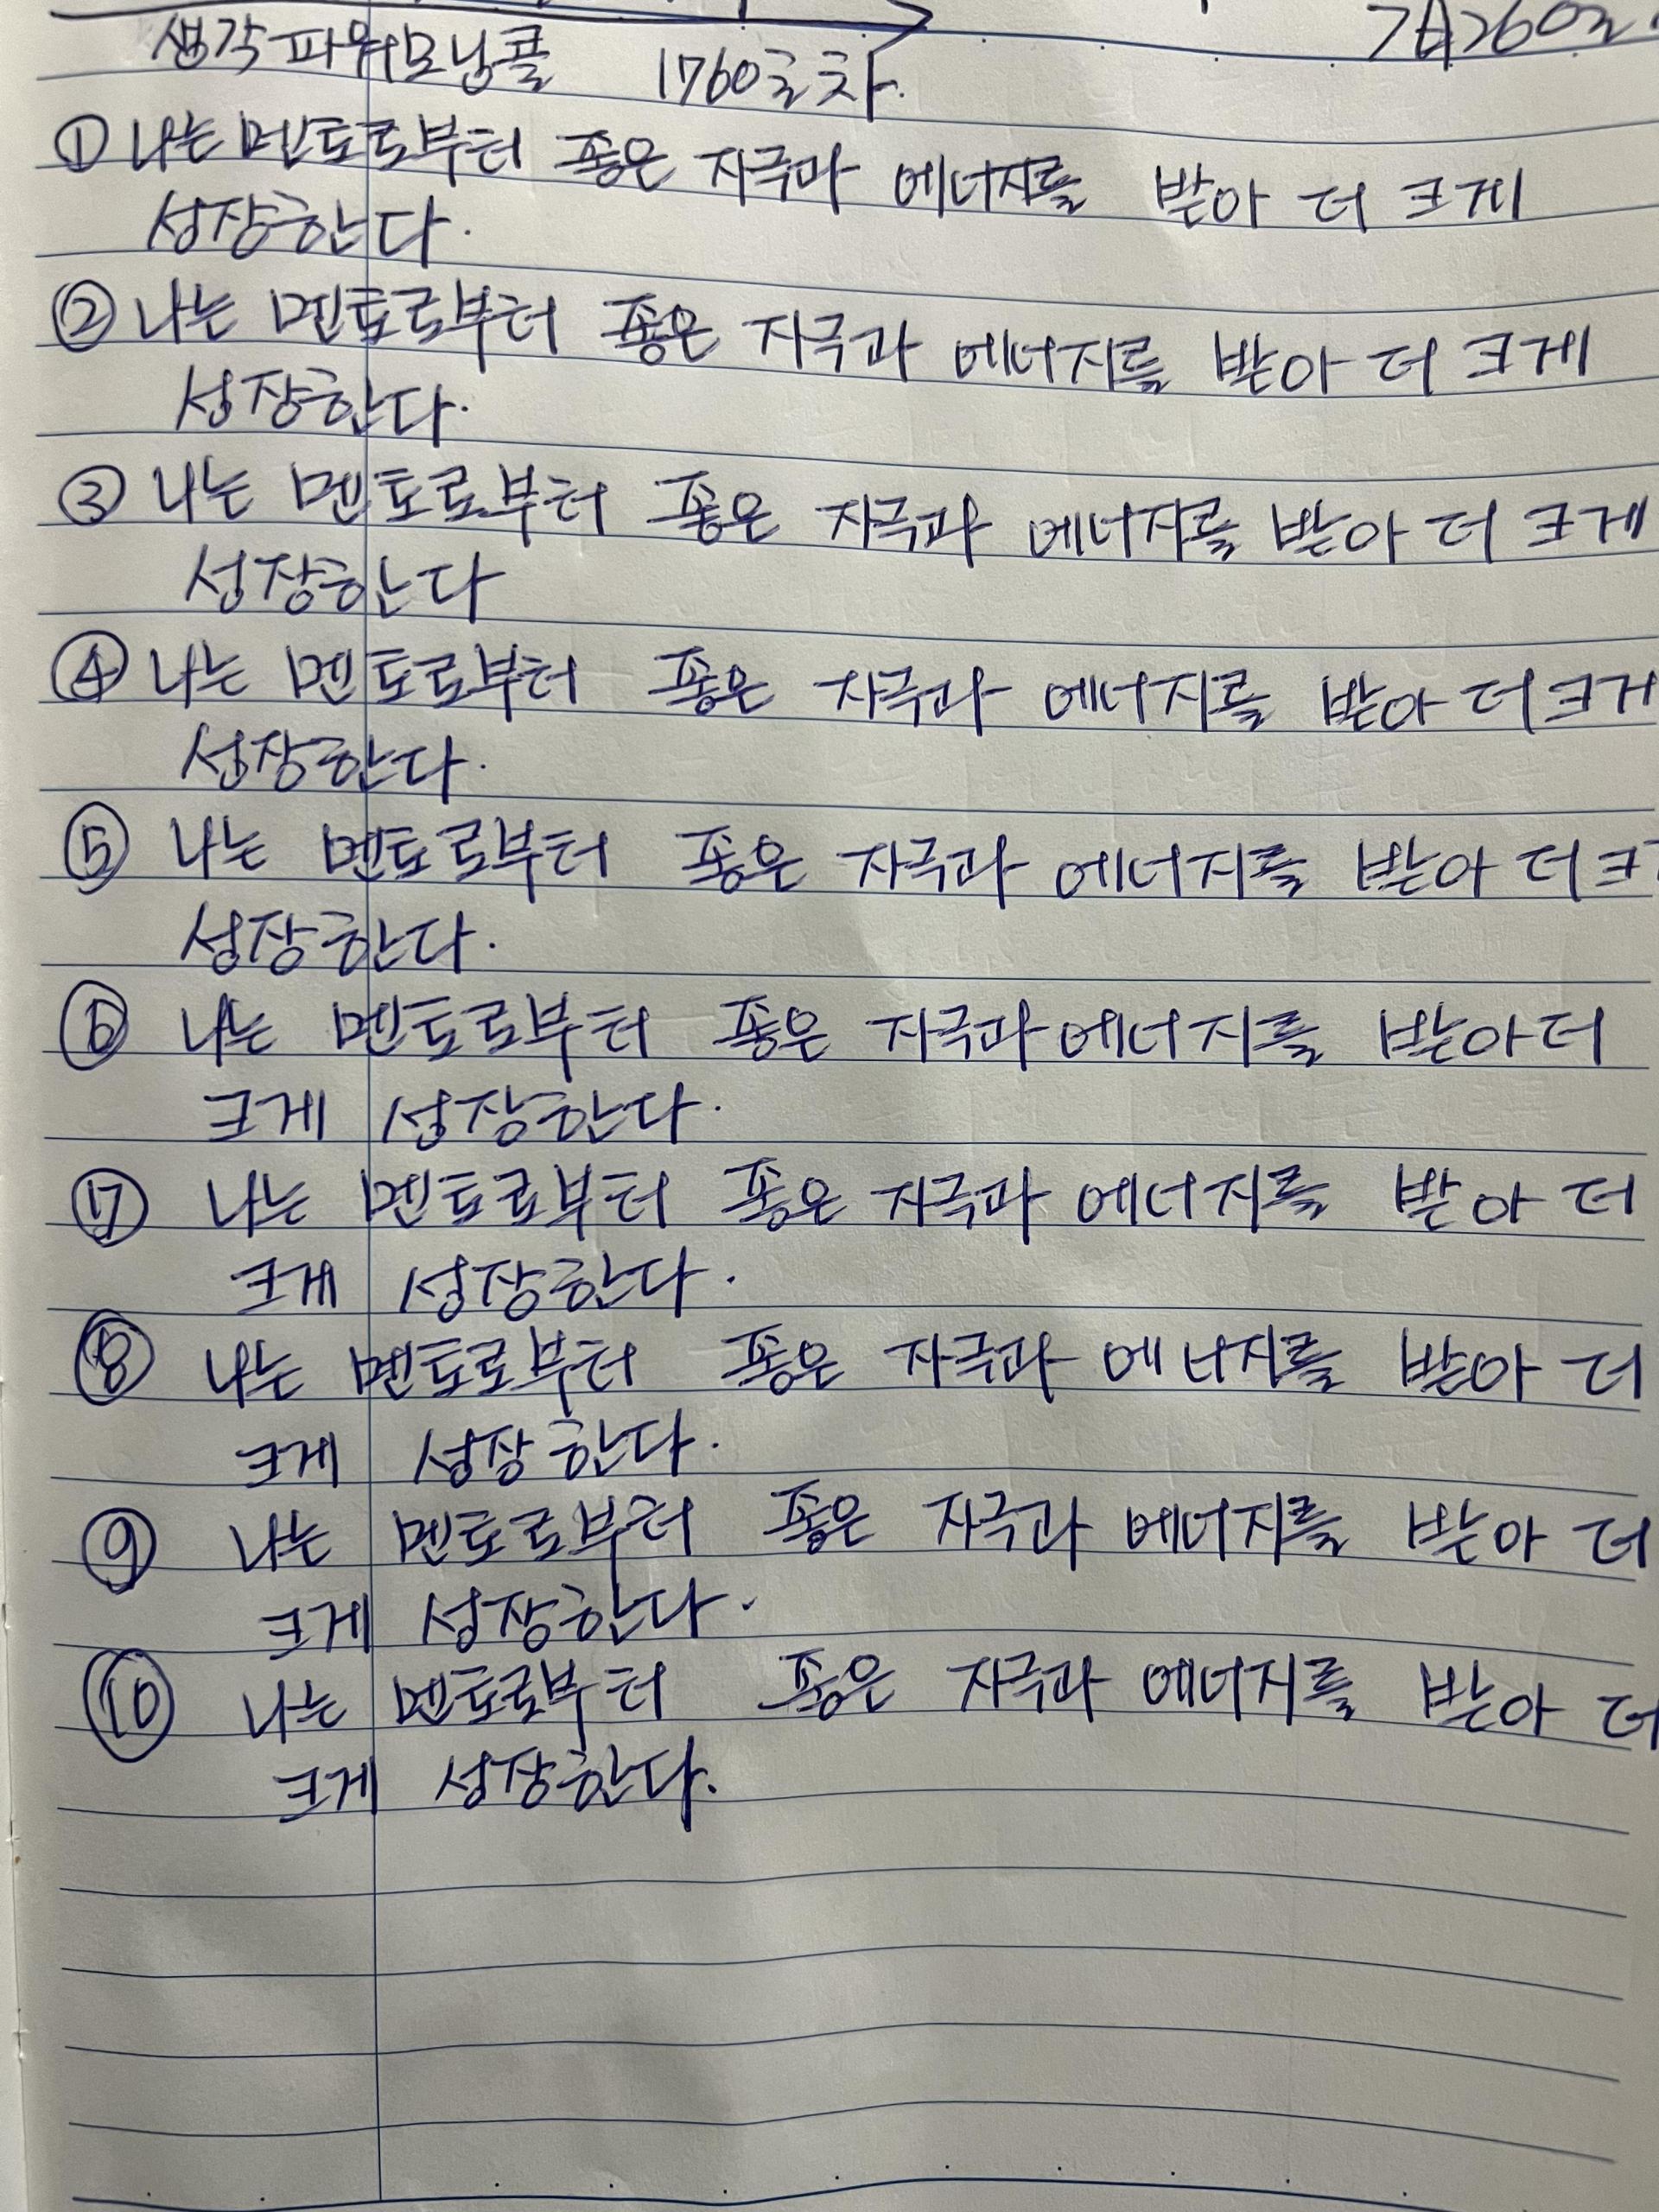 생각파워모닝콜 1760일차.
① 나는 멘토로부터 좋은 자극과 에너지를 받아 더 크게
성장한다.
② 나는 멘토로부터 좋은 자극과 에너지를 받아 더 크게
성장한다.
③ 나는 멘토로부터 좋은 자극과 에너지를 받아 더 크게
성장한다
④ 나는 멘토로부터 좋은 자극과 에너지를 받아 더 크게
성장한다.
⑤ 나는 멘토로부터 좋은 자극과 에너지를 받아 더 크
성장한다.
⑥ 나는 멘토로부터 좋은 자극과 에너지를 받아 더
크게 성장한다.
⑦ 나는 멘토로부터 좋은 자극과 에너지를 받아 더
크게 성장한다.
⑧ 나는 멘토로부터 좋은 자극과 에너지를 받아 더
크게 성장한다.
⑨ 나는 멘토로부터 좋은 자극과 에너지를 받아 더
크게 성장한다.
⑩ 나는 멘토로부터 좋은 자극과 에너지를 받아 더
크게 성장한다.